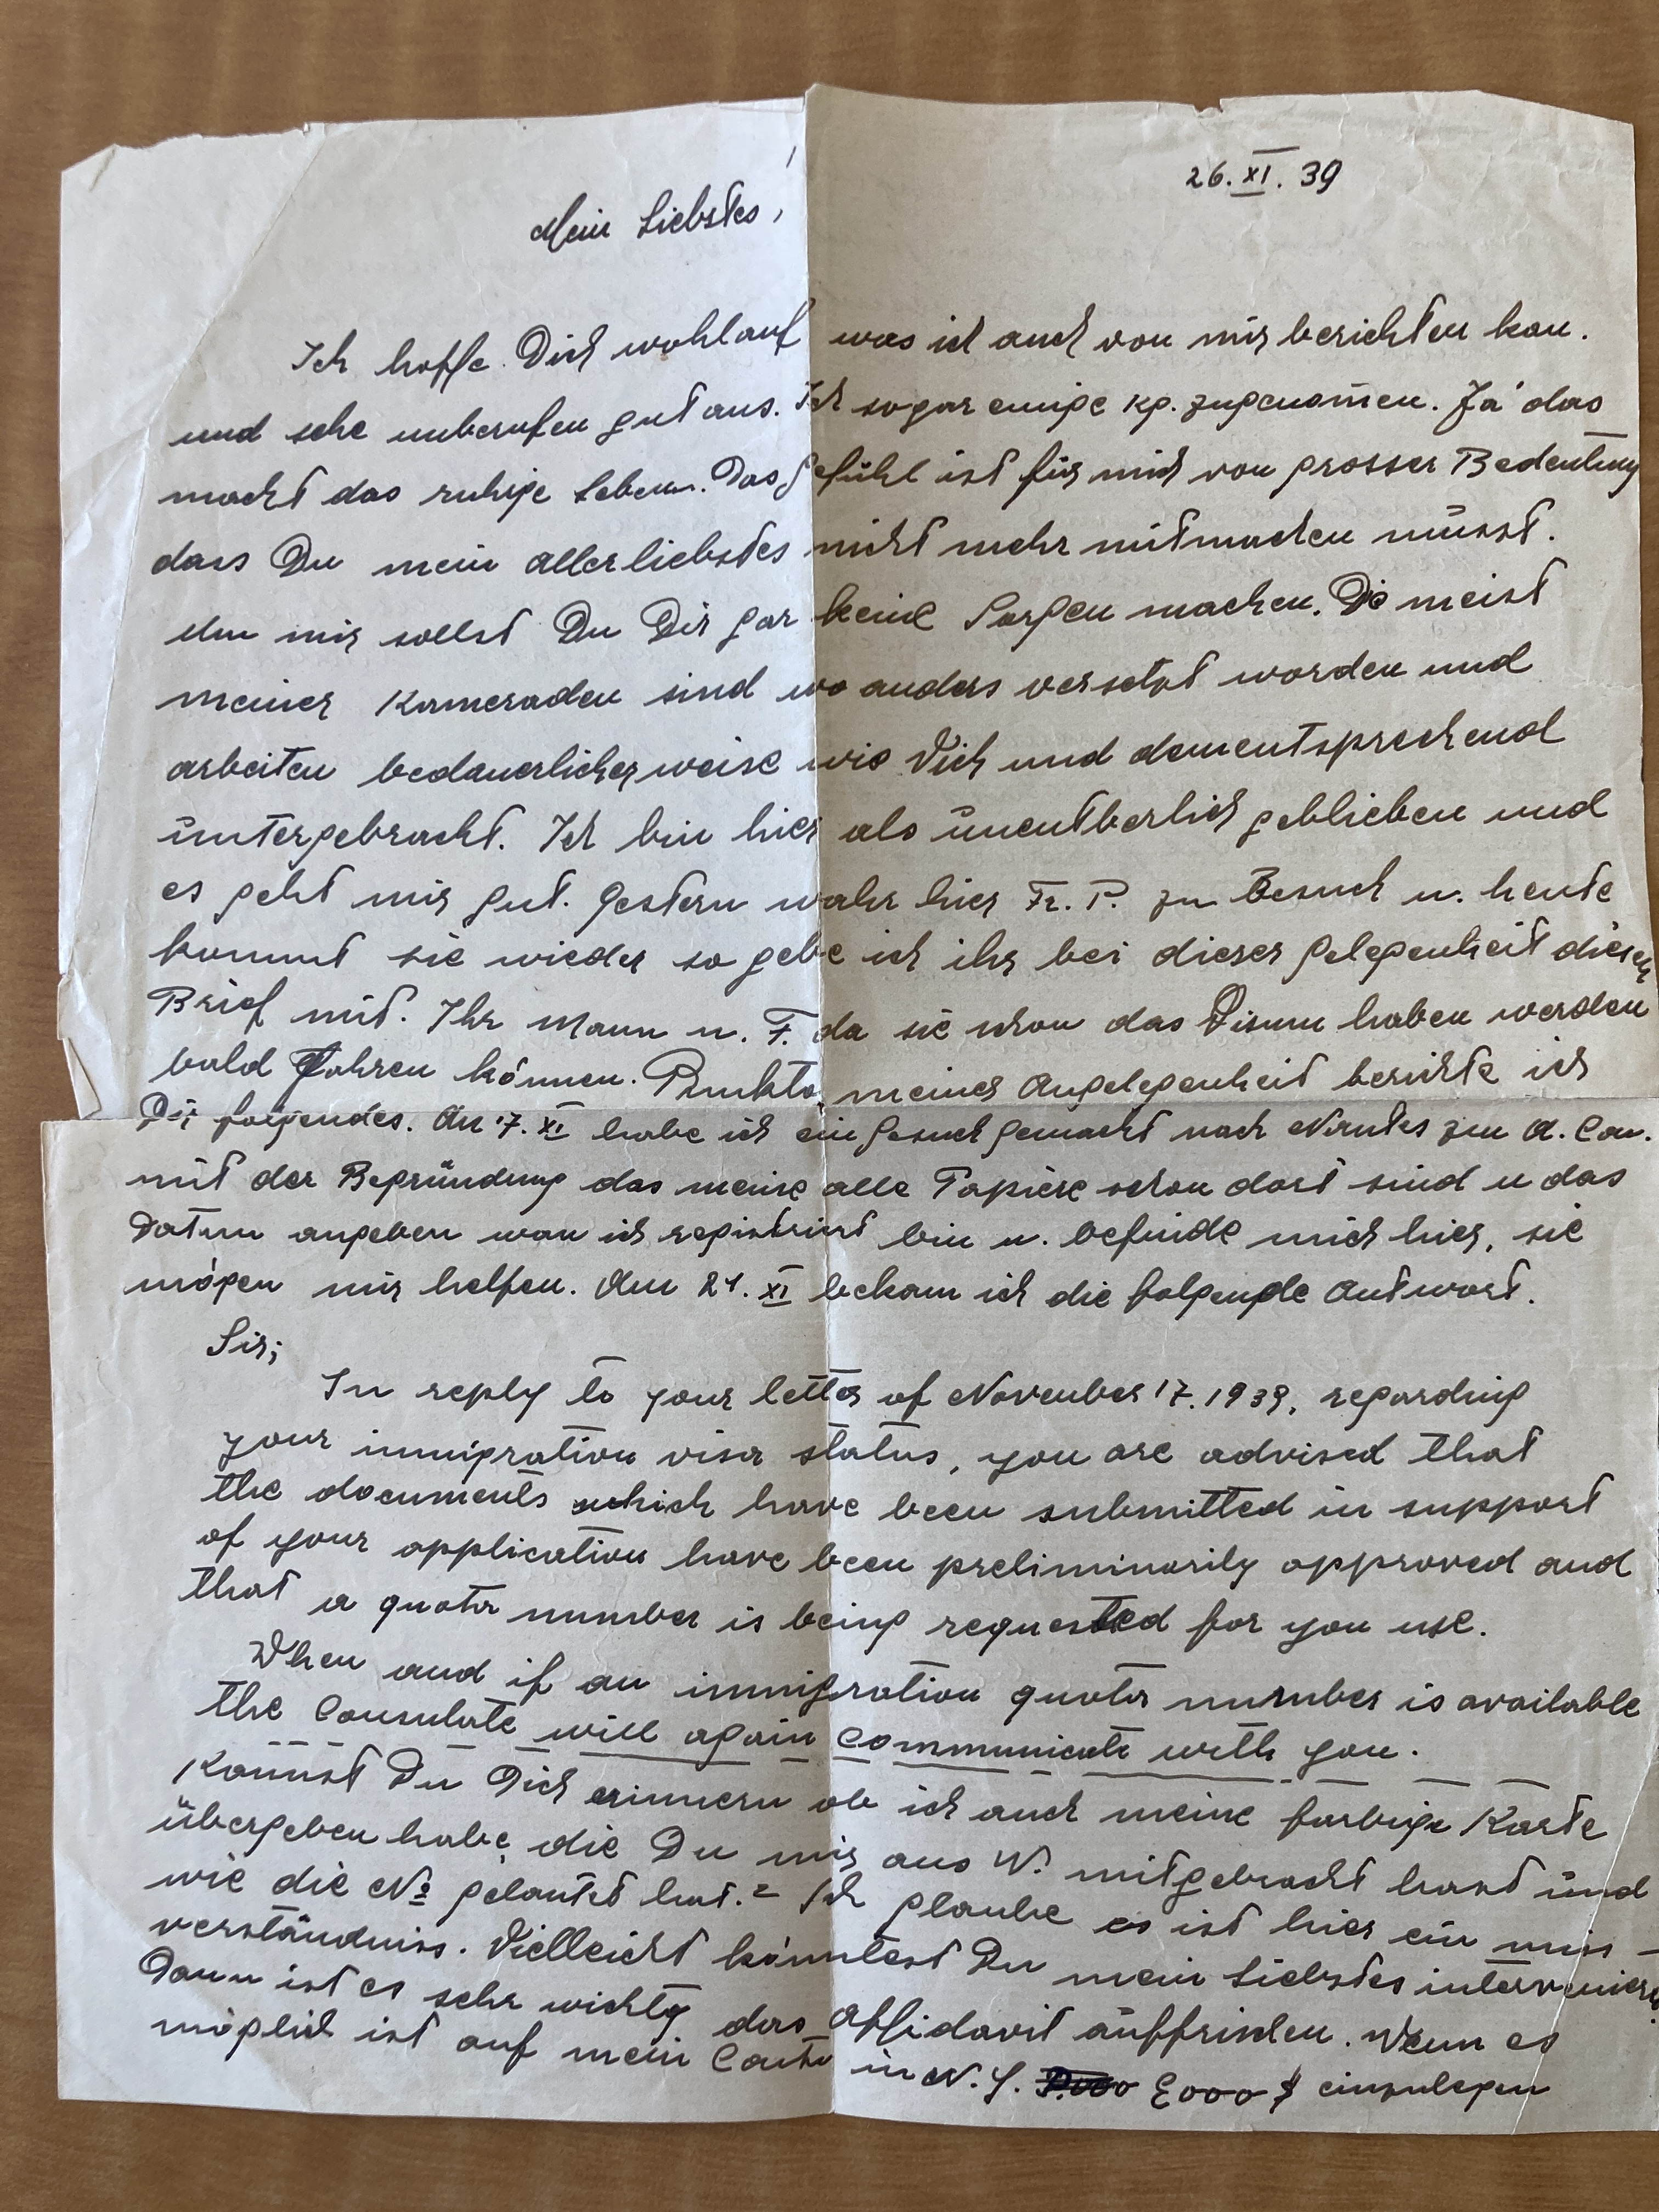 26. XI. 39
Mein Liebstes,
Ich hoffe Dich wohlauf was ich auch von mir berichten kan.
und sehe unberufen gut aus. Ich sogar einige kg. zugenom̄en. Já das
macht das ruhige Leben. Das Gefühl ist für mich von grosser Bedeutung
dass Du mein allerliebstes nicht mehr mitmachen müsst.
Um mir sollst Du Dir gar keine Sorgen machen. Die meist
meiner Kameraden sind wo anders versetzt worden und
arbeiten bedauerlicherweise wie Vieh und dementsprechend
üntergebracht. Ich bin hier als ünentberlich geblieben und
es geht mir gut. Gestern wahr hier Fr. P. zu Besuch u. heute
kommt sie wieder so gebe ich ihr bei dieser Gelegenheit diesen
Brief mit. Ihr Mann u. F. da sie schon das Visum haben werden
bald fahren können. Punkto meiner Angelegenheit berichte ich
Dir folgendes. Am 17. XI habe ich ein Gesuch gemacht nach Nantes zum A. Con.
mit der Begründung das meine alle Papiere schon dort sind u das
Datum angeben wan ich registriert bin u. befinde mich hier, sie
mögen mir helfen. Am 21. XI bekam ich die folgende Antwort.
Sir;
In reply to your letter of November 17. 1939, regarding
your immigration visa status, you are advised that
the documents which have been submitted in support
of your application have been preliminarily approved and
that a quota number is being requested for you use.
When and if an immigration quota number is available
the Consulate will again communicate with you.
Kan̄nst Du Dich erinnern ob ich auch meine farbige Karte
übergeben habe, die Du mir aus W. mitgebracht hast ünd
wie die No gelautet hat.? Ich glaube es ist hier ein miss-
verständniss. Vielleicht könntest Du mein Liebstes intervenieren.
Dann ist es sehr wichtg das Affidavit aüffrischen. Wenn es
möglich ist auf mein Conto in N. Y. 2000 $ einzulegen